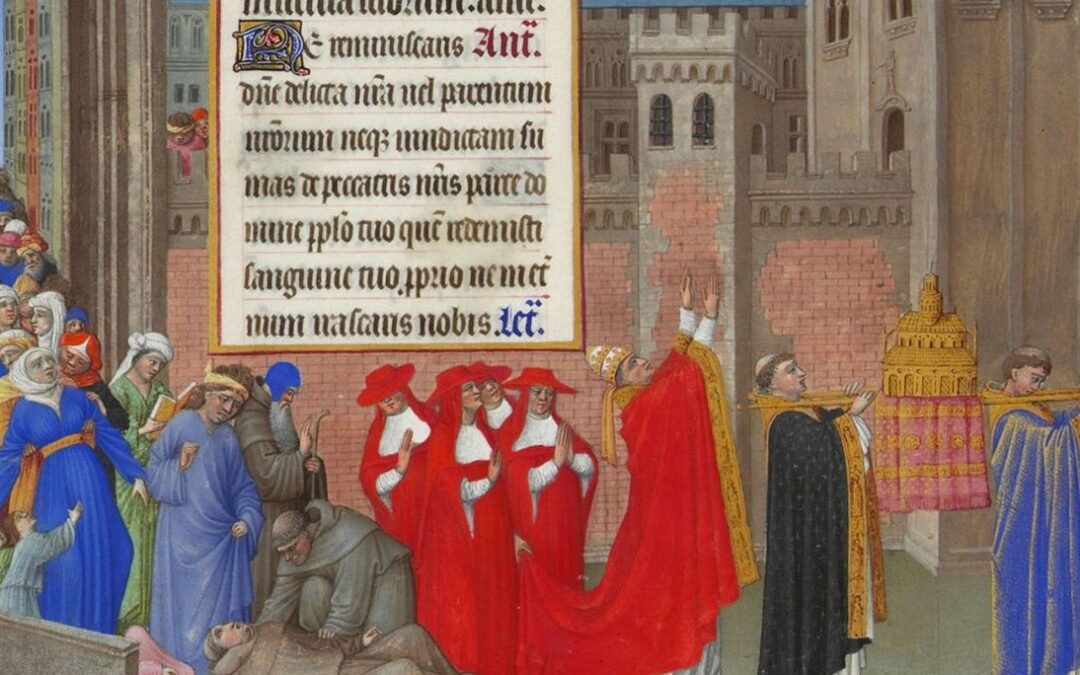 Ne reminiscaris Ant̃.
dñe delicta nr̃a uel parentum
nr̃orum neqꝫ uindictam su
mas de peccatis nr̃is parce do
mine pplo tuo quē redemisti
sanguine tuo ꝓprio ne in et̃
num irascaris nobis. Let̃.